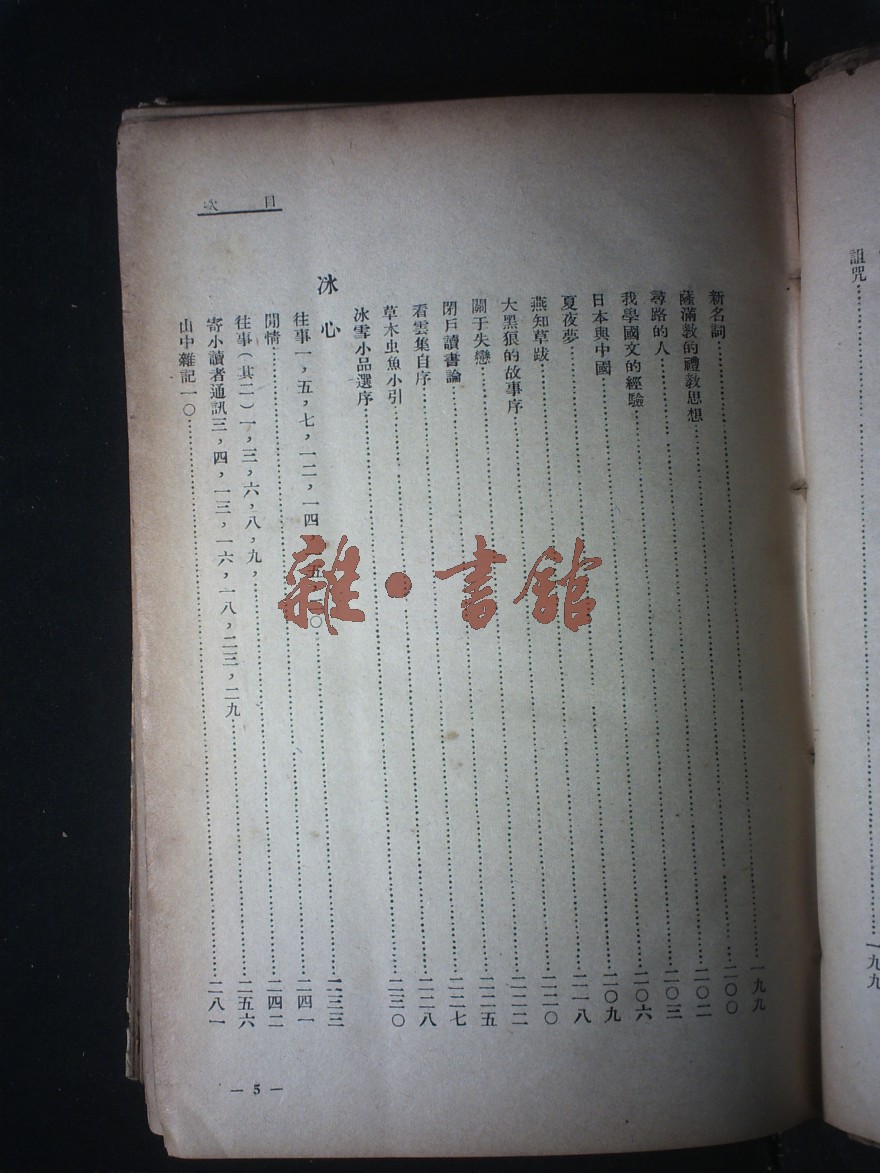 詛咒……一九九
目次
新名詞……一九九
薩滿教的禮教思想……二〇〇
尋路的人……二〇二
我學國文的經驗……二〇三
日本與中國……二〇六
夏夜夢……二〇九
燕知草跋……二一八
大黑狼的故事序……二二〇
關于失戀……二二二
閉戶讀書論……二二五
看雲集自序……二二七
草木虫魚小引……二二八
冰雪小品選序……二三〇
冰心
往事一，五，七，一二，一四，五〇……二三三
閒情……二四一
往事(其二)一，三，六，八，九，……二四二
寄小讀者通訊三，四，一三，一六，一八，二三，二九……二五六
山中雜記一〇……二八一
— 5 —
雜·書館